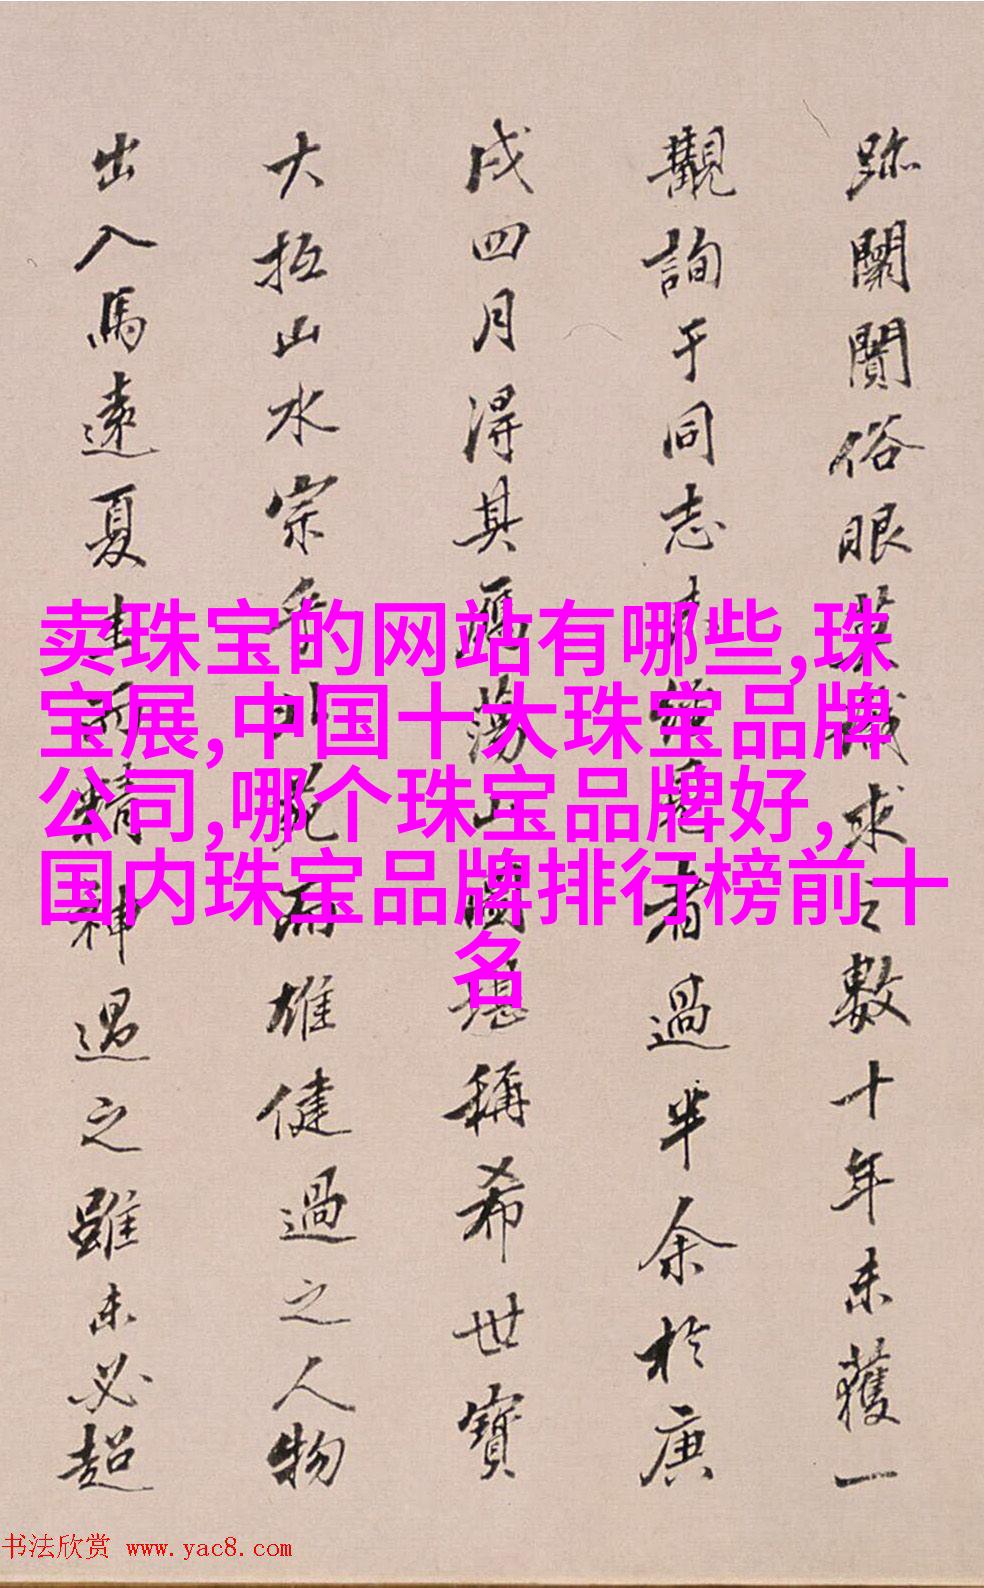 跡闤闠俗眼某識求之數十年未獲一
觀詢于同志者過半余於庚
戌四月得其堪稱希世寶
大抵山水宗而雄健過之人物
出入馬遠夏圭而精神過之雖未必超
卖珠宝的网站有哪些,珠
宝展,中国十大珠宝品牌
公司,哪个珠宝品牌好,
国内珠宝品牌排行榜前十
名
书法欣赏 www.yac8.com